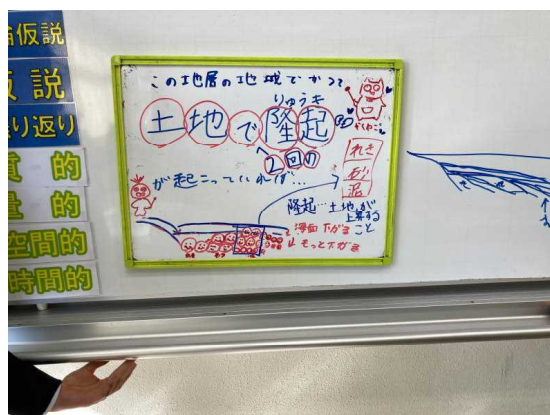 仮説
仮説
り返り
質的
量的
空間的
時間的
この地層の地域でかつて
りゅうき
土地で隆起
2回の
が起こっていれば…
れき
砂
泥
隆起…土地が
上昇する
こと
海面下がる
もっと下がる